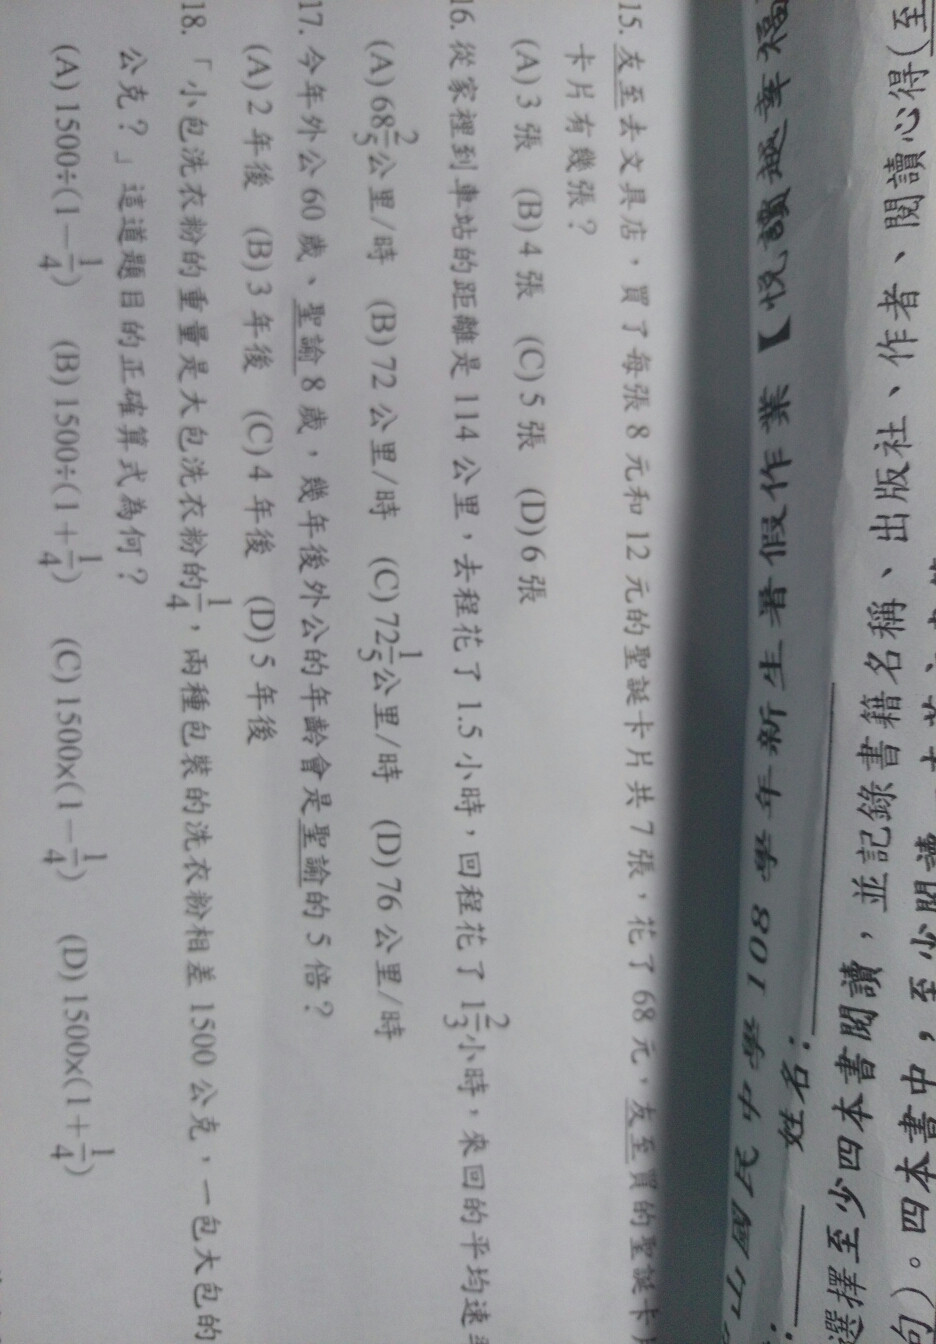 選擇至少四本書閱讀，並記錄書籍名稱、出版社、作者、閱讀心得(至
。四本書中，至少閱讀
姓名：
108學年新生暑假作業【悅讀越幸福
15. 友至去文具店，買了每張 8 元和 12 元的聖誕卡片共 7 張，花了 68 元，友至買的聖誕卡片
卡片有幾張？
(A) 3 張 (B) 4 張 (C) 5 張 (D) 6 張
16. 從家裡到車站的距離是 114 公里，去程花了 1.5 小時，回程花了 1 2/3 小時，來回的平均速
(A) 68 2/5 公里/時 (B) 72 公里/時 (C) 72 1/5 公里/時 (D) 76 公里/時
17. 今年外公 60 歲、聖諭 8 歲，幾年後外公的年齡會是聖諭的 5 倍？
(A) 2 年後 (B) 3 年後 (C) 4 年後 (D) 5 年後
18. 「小包洗衣粉的重量是大包洗衣粉的 1/4，兩種包裝的洗衣粉相差 1500 公克，一包大包的
公克？」這道題目的正確算式為何？
(A) 1500÷(1－1/4) (B) 1500÷(1＋1/4) (C) 1500x(1－1/4) (D) 1500x(1＋1/4)